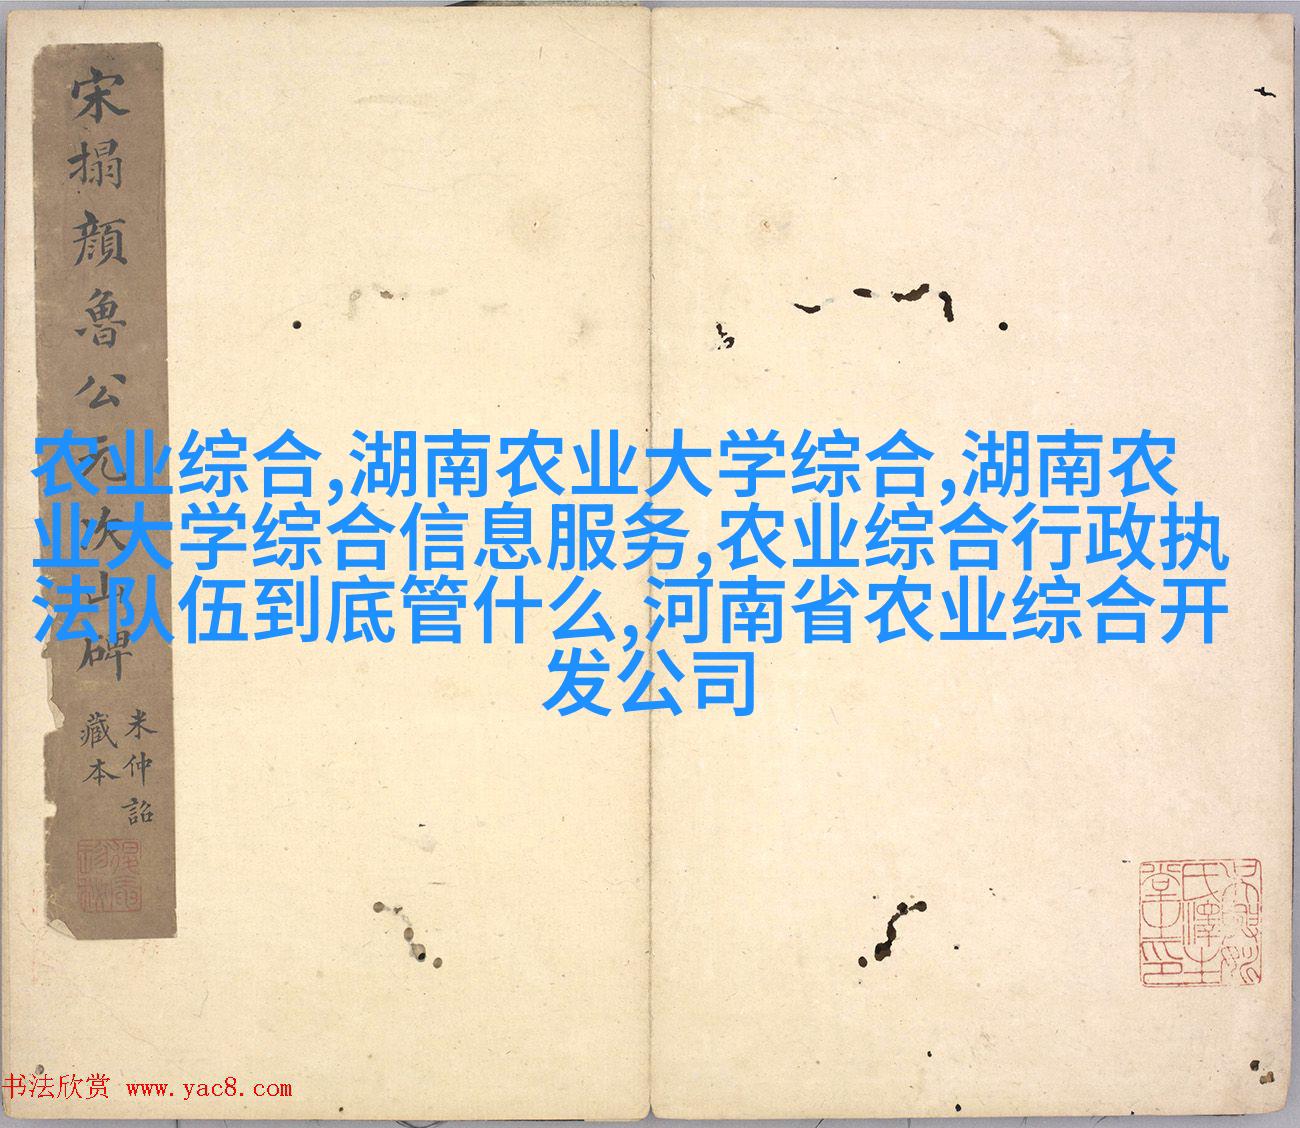 宋搨顏魯公元次山碑
米仲詔
藏本
农业综合,湖南农业大学综合,湖南农
业大学综合信息服务,农业综合行政执
法队伍到底管什么,河南省农业综合开
发公司
书法欣赏 www.yac8.com